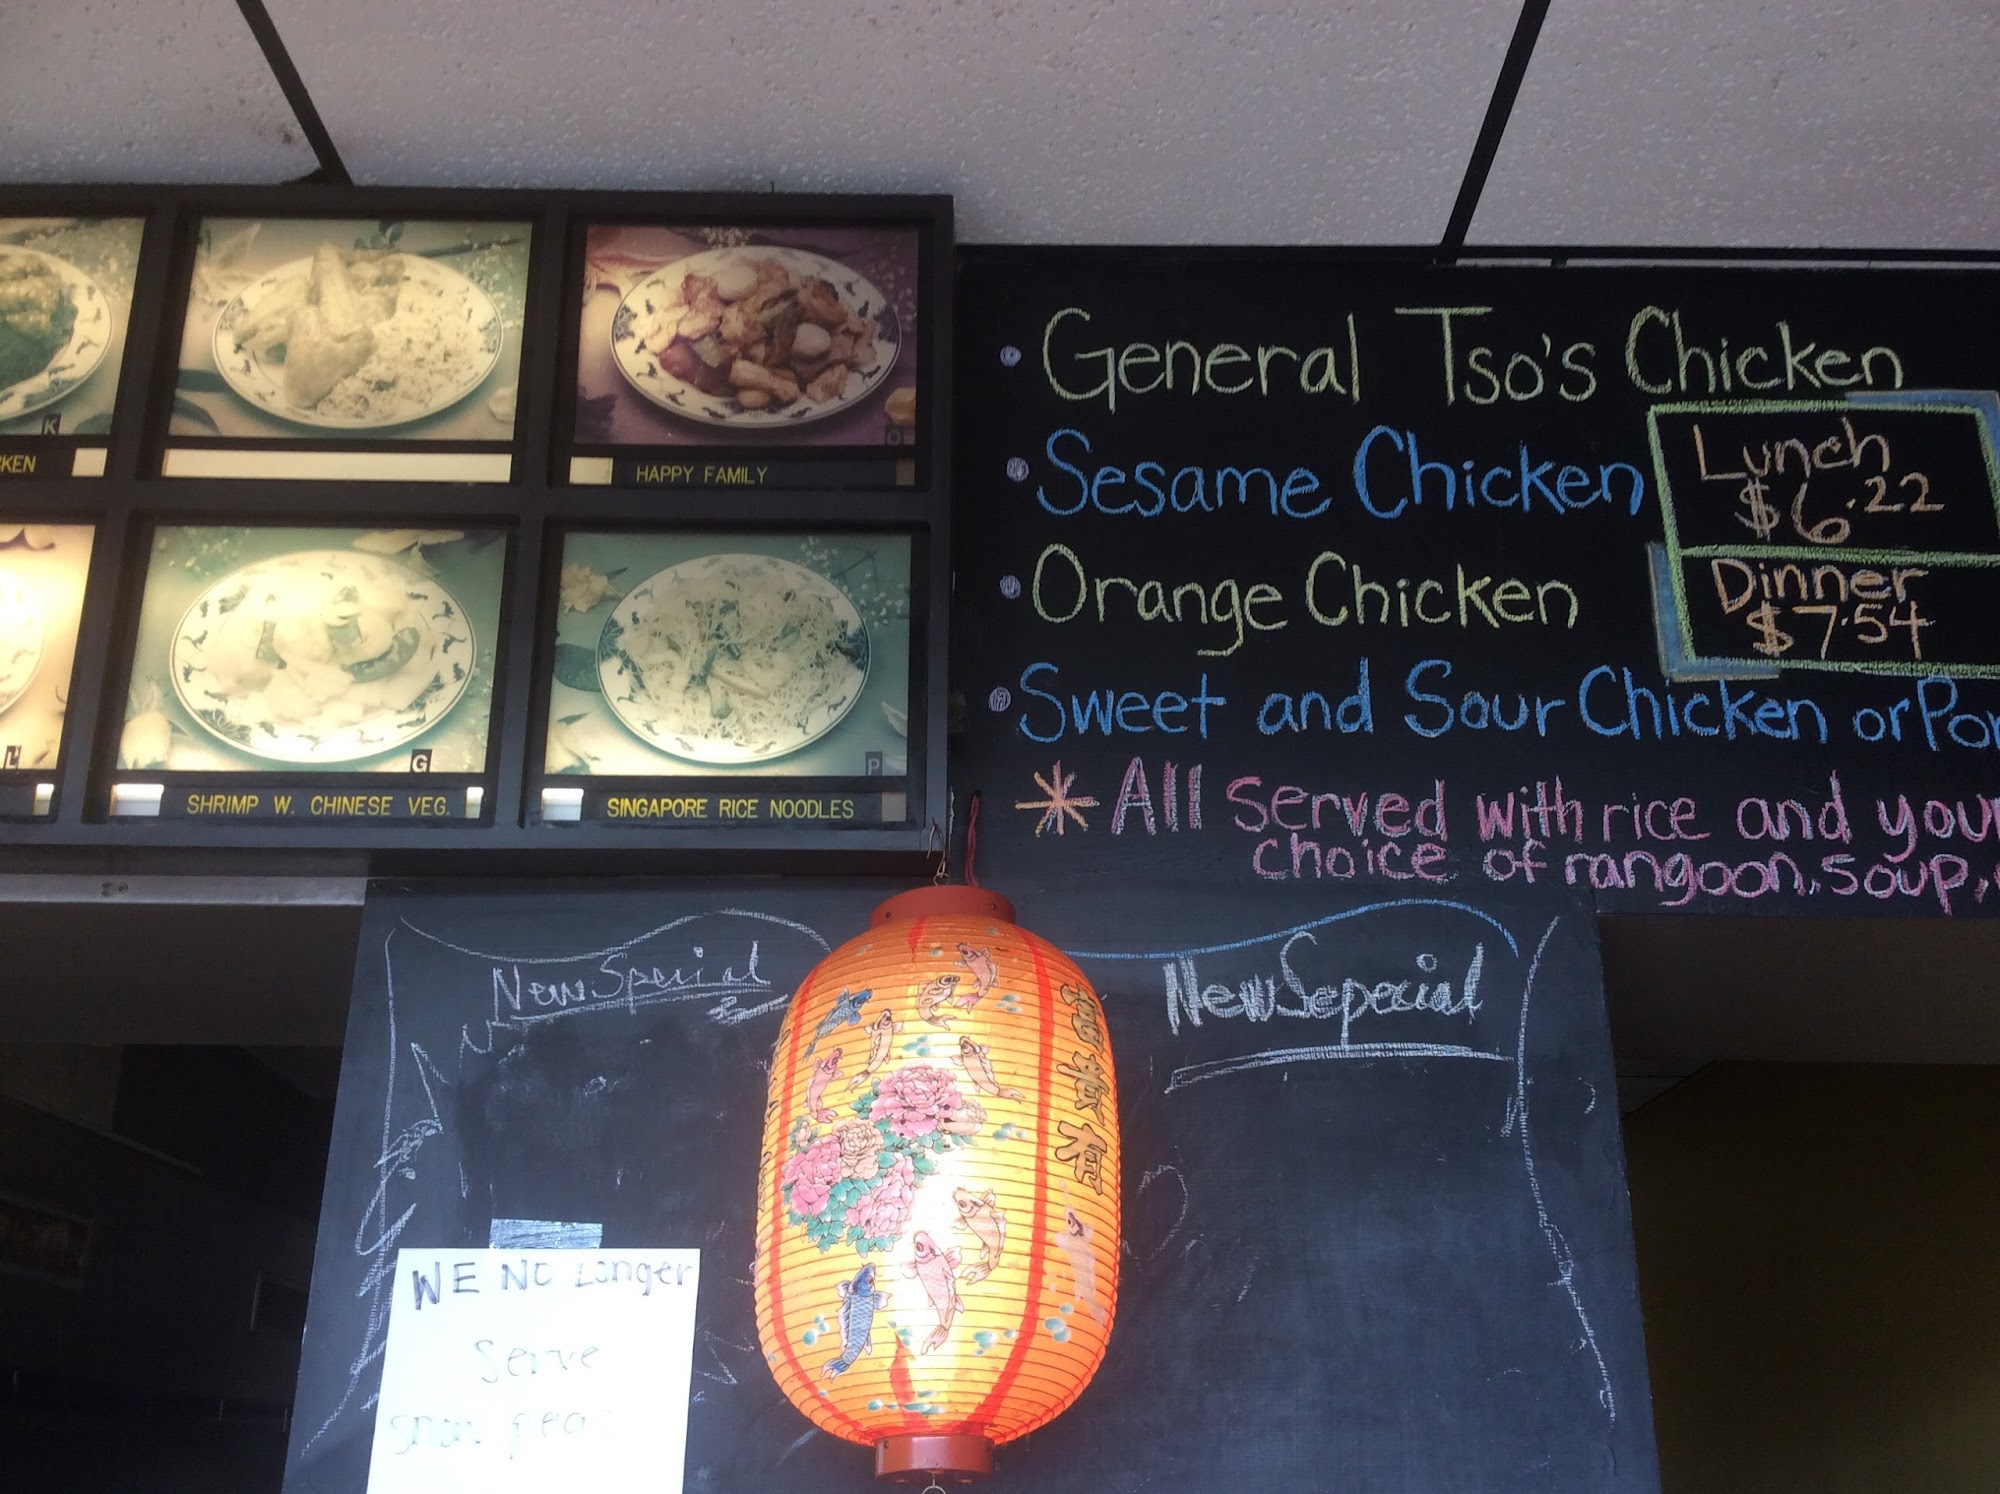 K
CKEN
O
HAPPY FAMILY
L
G
SHRIMP W. CHINESE VEG.
P
SINGAPORE RICE NOODLES
General Tso's Chicken
Sesame Chicken
Orange Chicken
Sweet and Sour Chicken or Por
Lunch
$6.22
Dinner
$7.54
* All served with rice and your
choice of rangoon, soup,
New Special
New Sepecial
WE NO Longer
Serve
snow peas